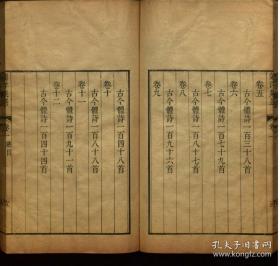 卷五
古今體詩一百三十八首
卷六
古今體詩一百七十九首
卷七
古今體詩一百八十七首
卷八
古今體詩一百九十六首
卷九
古今體詩一百四十八首
卷十
古今體詩一百八十八首
卷十一
古今體詩一百九十一首
卷十二
古今體詩一百四十四首
孔夫子旧书网